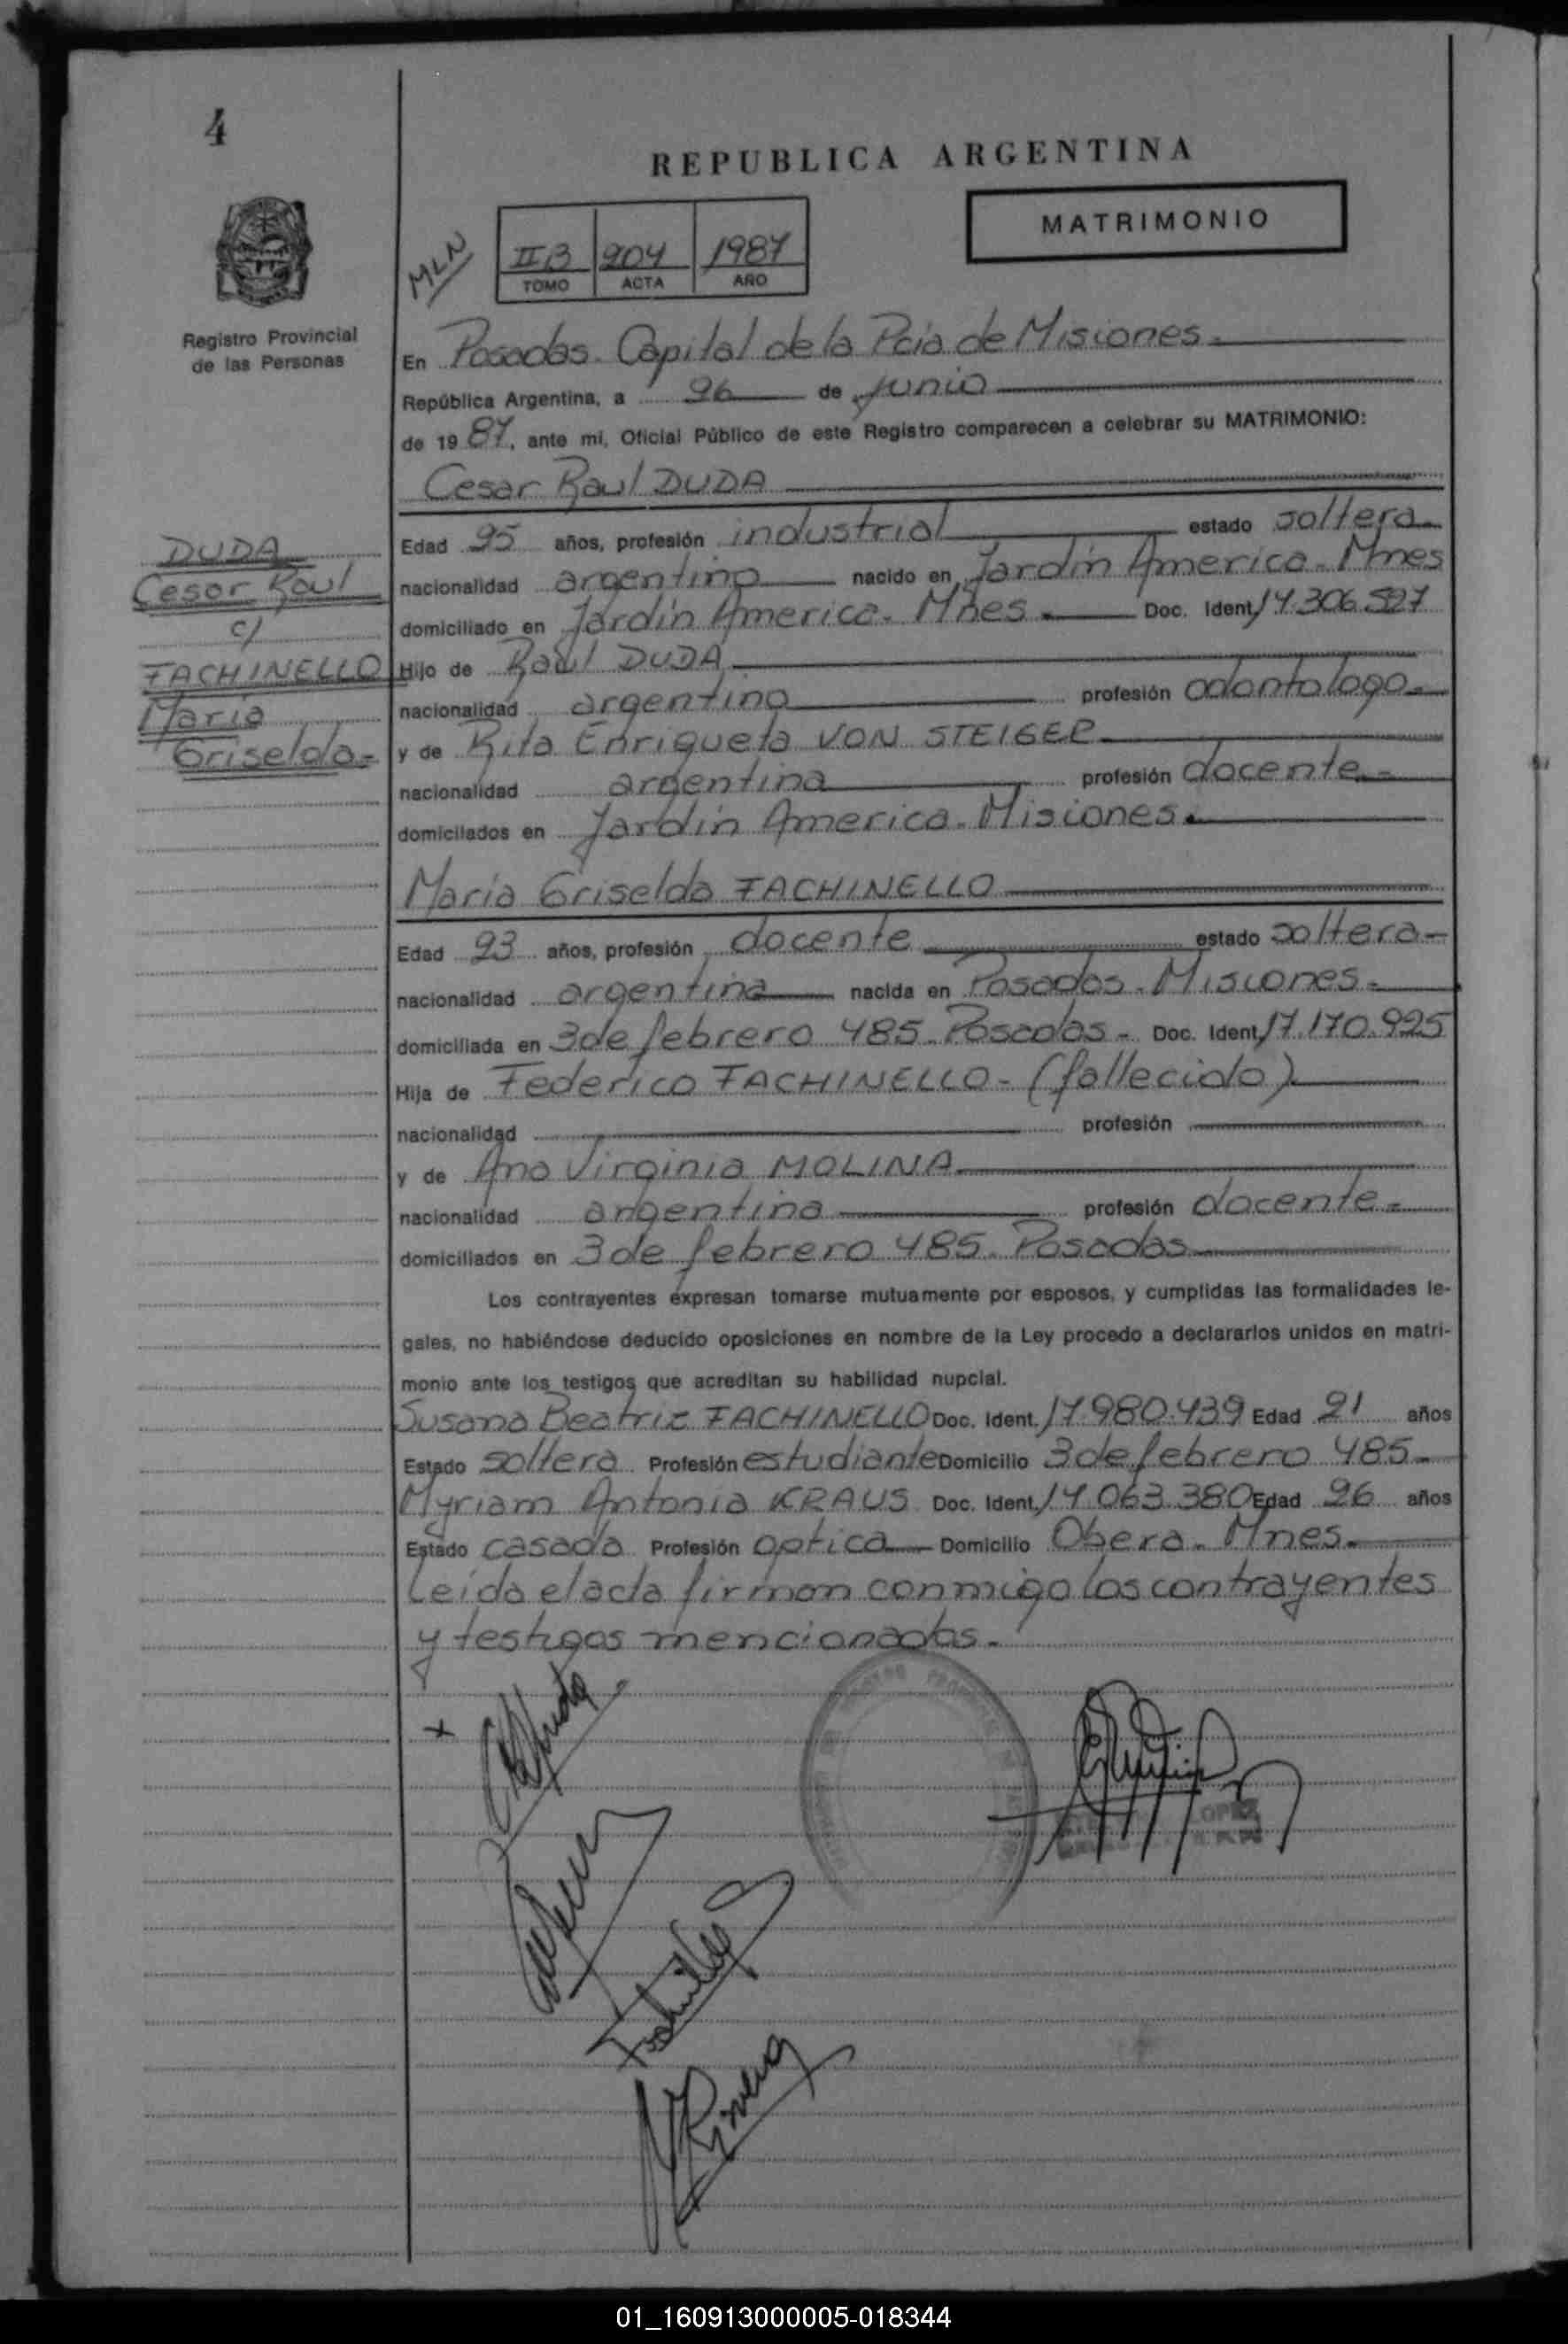 4
REPUBLICA ARGENTINA
MATRIMONIO
MLN
II B 204 1987
TOMO ACTA AÑO
Registro Provincial
de las Personas
En Posadas. Capital de la Pcia de Misiones.
República Argentina, a 26 de junio
de 1987, ante mi, Oficial Público de este Registro comparecen a celebrar su MATRIMONIO:
Cesar Raul DUDA
DUDA
Cesar Raul
c/
FACHINELLO
Maria
Griselda-
Edad 25 años, profesión industrial estado soltera-
nacionalidad argentino nacido en Jardin America. Mnes
domiciliado en Jardin America. Mnes. Doc. Ident. 14.306.527
Hijo de Raul DUDA
nacionalidad argentino profesión odontologo-
y de Rita Enriqueta VON STEIGER
nacionalidad argentina profesión docente-
domicilados en Jardin America. Misiones.
Maria Griselda FACHINELLO
Edad 23 años, profesión docente estado soltera-
nacionalidad argentina nacida en Posadas. Misiones.
domiciliada en 3 de febrero 485. Posadas- Doc. Ident. 17.170.225
Hija de Federico FACHINELLO- (fallecido)
nacionalidad profesión
y de Ana Virginia MOLINA
nacionalidad argentina profesión docente-
domiciliados en 3 de febrero 485. Posadas
Los contrayentes expresan tomarse mutuamente por esposos, y cumplidas las formalidades le-
gales, no habiéndose deducido oposiciones en nombre de la Ley procedo a declararlos unidos en matri-
monio ante los testigos que acreditan su habilidad nupcial.
Susana Beatriz FACHINELLO Doc. Ident. 17.980.439 Edad 21 años
Estado soltera Profesión estudiante Domicilio 3 de febrero 485-
Myriam Antonia KRAUS Doc. Ident. 14.063.380 Edad 26 años
Estado casada Profesión optica Domicilio Obera. Mnes.
Leida el acta firman conmigo los contrayentes
y testigos mencionados.
01_160913000005-018344